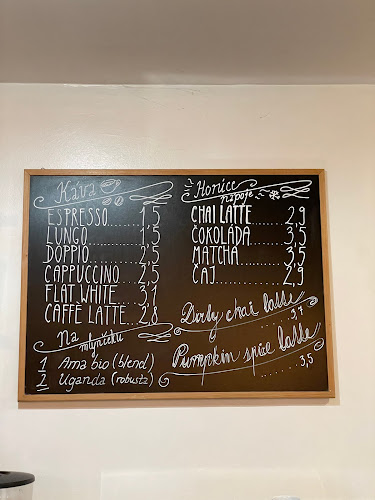 Káva
ESPRESSO.......1,5
LUNGO..........1,5
DOPPIO.........2,5
CAPPUCCINO.....2,5
FLAT WHITE.....3,1
CAFFÉ LATTE....2,8
Na mlynčeku
1 Ama bio (blend)
2 Uganda (robusta)
Horúce
nápoje
CHAI LATTE.....2,9
ČOKOLÁDA.......3,5
MATCHA.........3,5
ČAJ............2,9
Dirty chai latte
......3,7
Pumpkin spice latte
........3,5